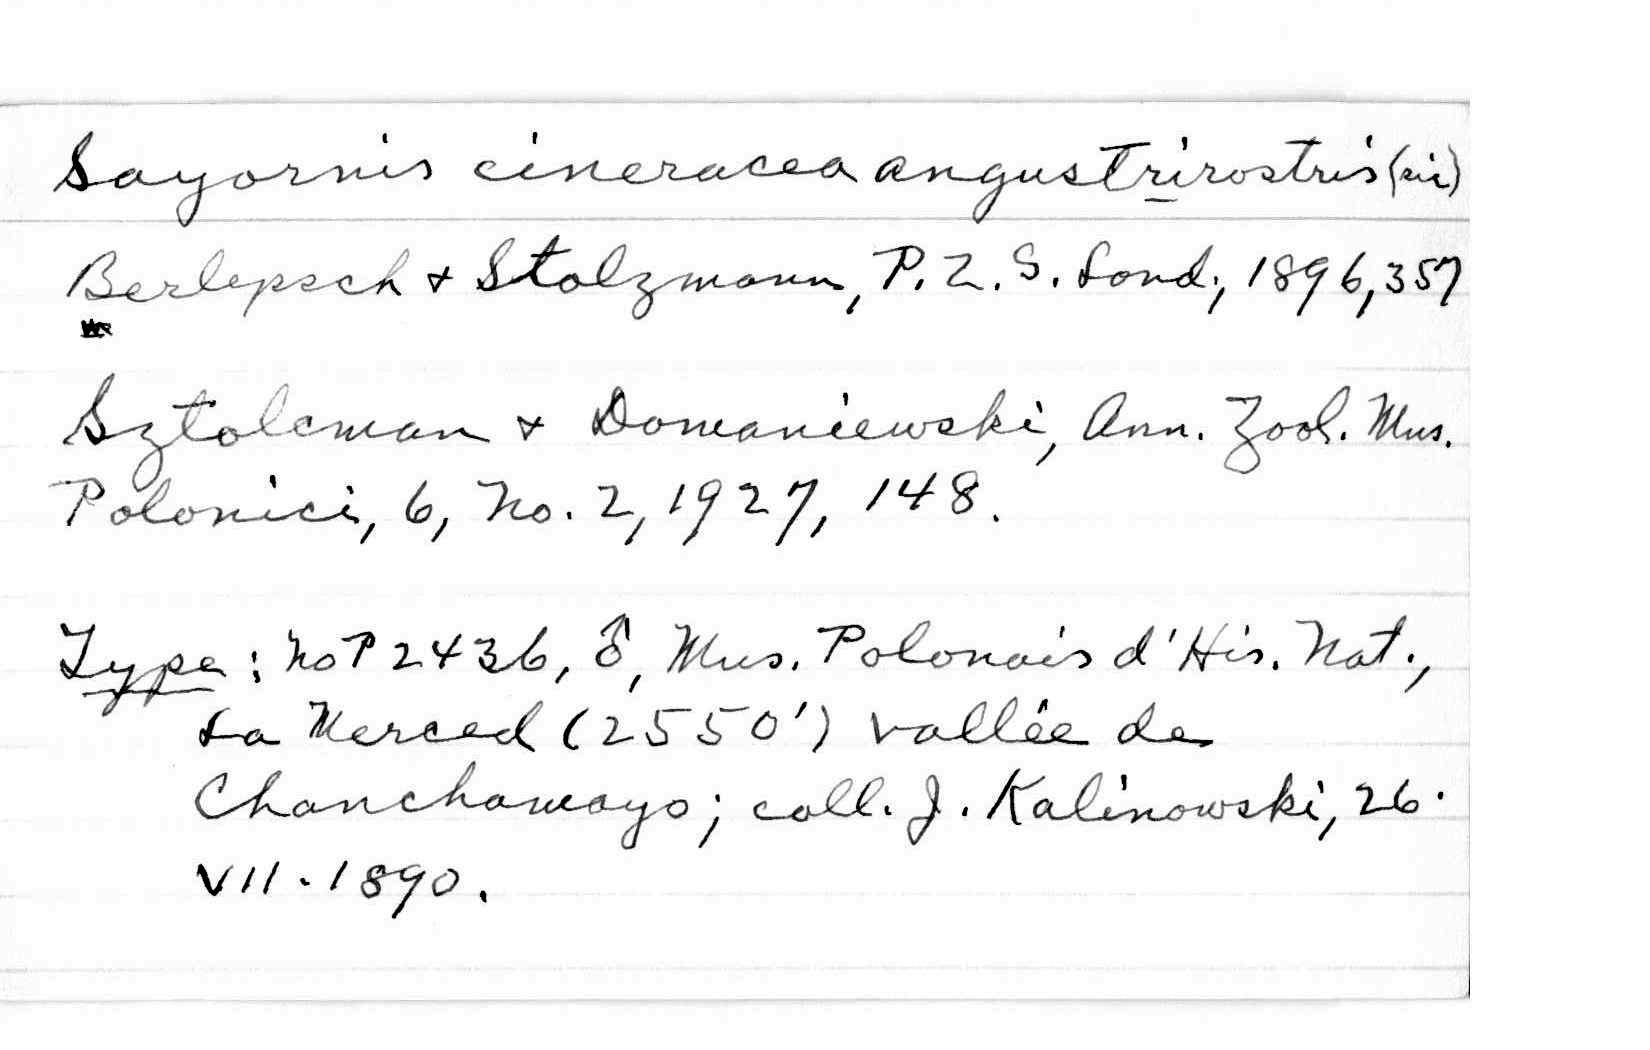 Sayornis cineracea angustrirostris (sic)
Berlepsch & Stolzmann, P. Z. S. Lond., 1896, 357
Sztolcman & Domaniewski, Ann. Zool. Mus.
Polonici, 6, No. 2, 1927, 148.
Type: No P 2436, ♂, Mus. Polonais d'His. Nat.,
La Merced (2550') vallée de
Chanchamayo; coll. J. Kalinowski, 26.
VII. 1890.